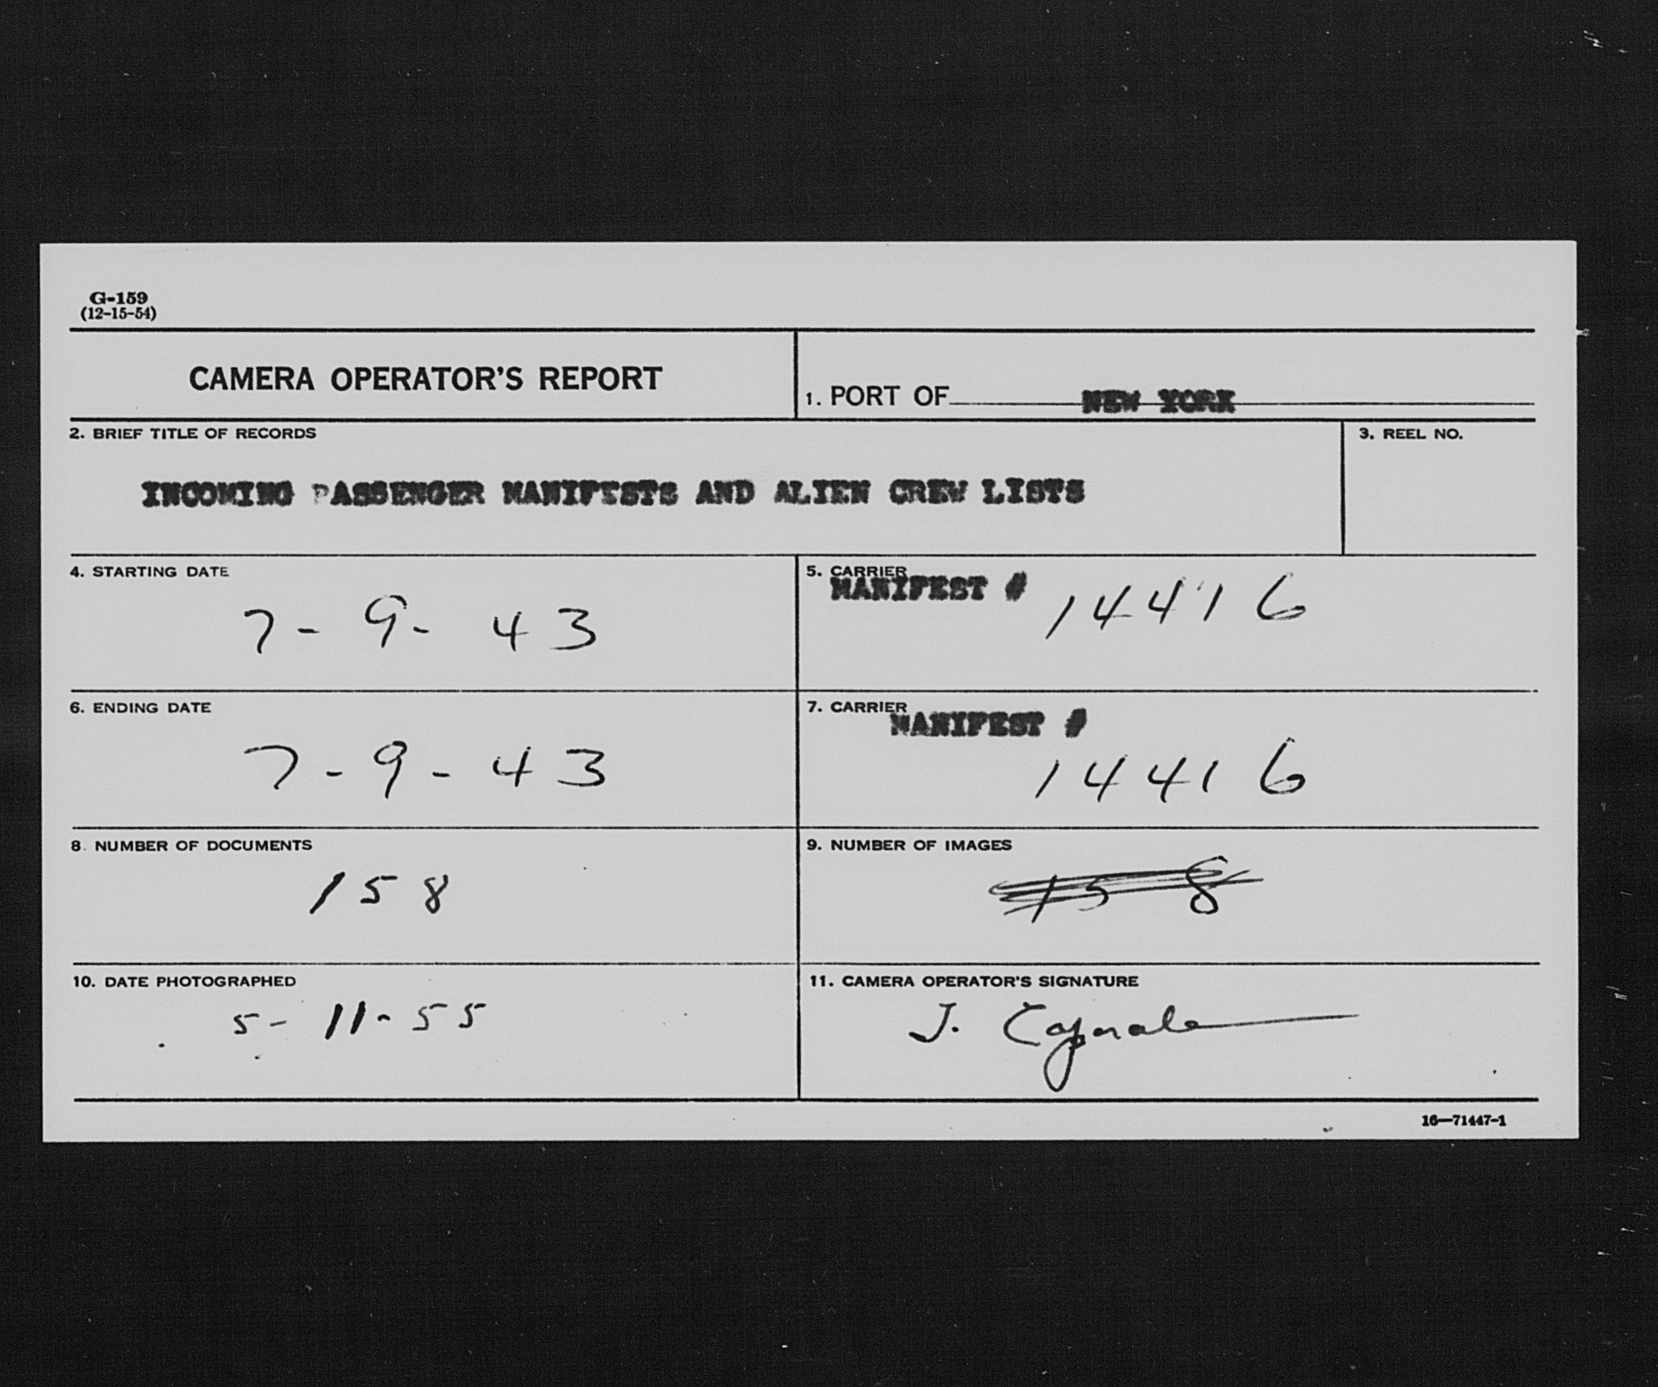 G-159
(12-15-54)
CAMERA OPERATOR'S REPORT
1. PORT OF NEW YORK
2. BRIEF TITLE OF RECORDS
3. REEL NO.
INCOMING PASSENGER MANIFESTS AND ALIEN CREW LISTS
4. STARTING DATE
7-9-43
5. CARRIER
MANIFEST # 14416
6. ENDING DATE
7-9-43
7. CARRIER
MANIFEST #
14416
8. NUMBER OF DOCUMENTS
158
9. NUMBER OF IMAGES
158
10. DATE PHOTOGRAPHED
5-11-55
11. CAMERA OPERATOR'S SIGNATURE
J.
16—71447-1